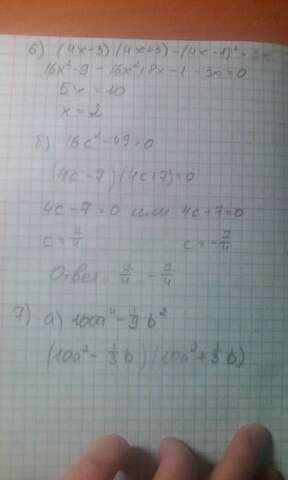 б) (4x-3)(4x+3)-(4x-1)²-3x
16x²-9-16x²+8x-1-3x=0
5x=10
x=2
б) 16c²-49=0
(4c-7)(4c+7)=0
4c-7=0 или 4c+7=0
c=7/4 c=-7/4
Ответ: 7/4 -7/4
7) а) 100a⁴-1/9b²
(10a²-1/3b)(10a²+1/3b)